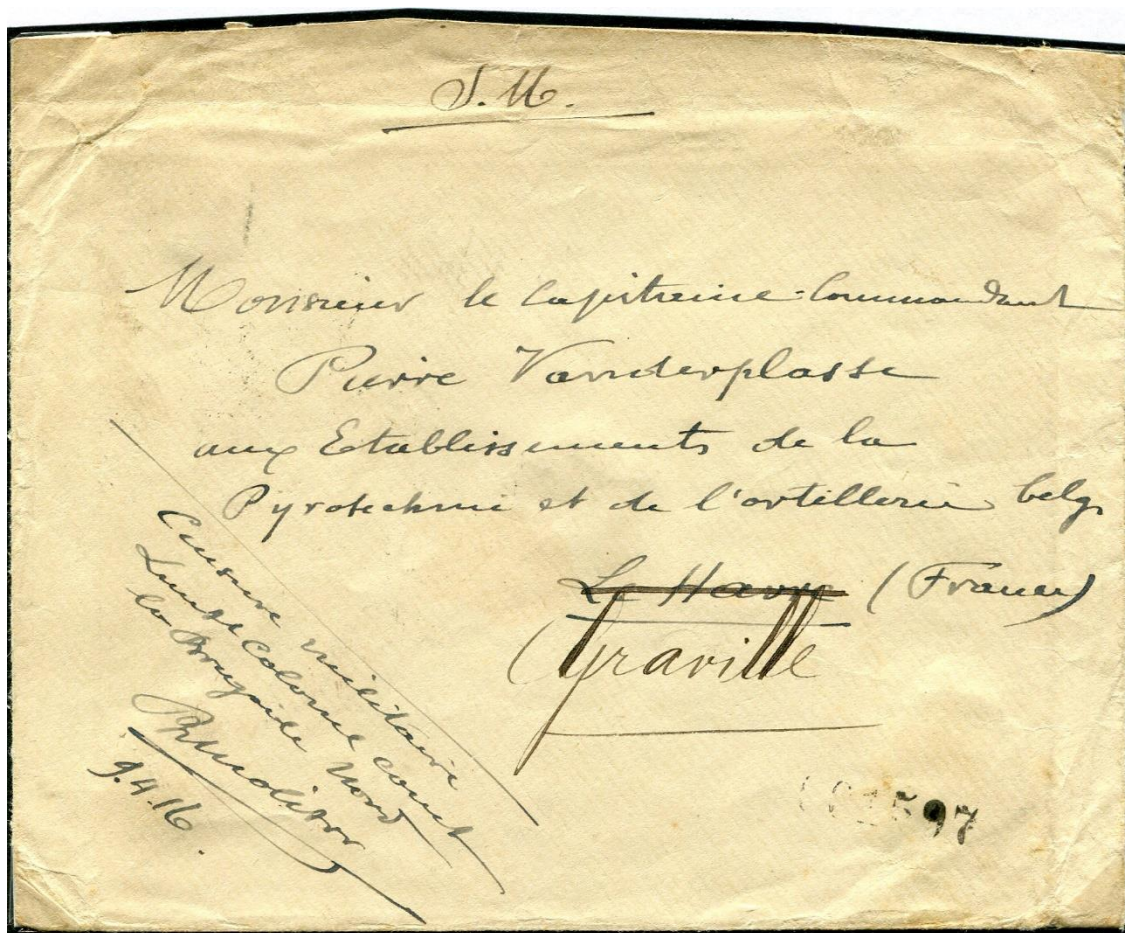 S.M.
Monsieur le Capitaine-Commandant
Pierre Vanderplasse
aux Etablissements de la
Pyrotechnie et de l'artillerie belge
Le Havre (France)
Graville
Censure militaire
Lieut Colonel Comt
la Brigade Nord
PhMolitor
9.4.16
597